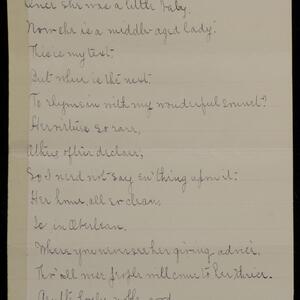 Once she was a little baby.
Now she is a middle-aged lady.
There is my text.
But where is the rest
To rhyme in with my wonderful sonnet?
Her virtues so rare,
Others often declare,
So I need not say anything upon it.
Her home, all so clean,
Is in Oberlean,
Where you never see her giving advice,
Tho' all over people will come to her